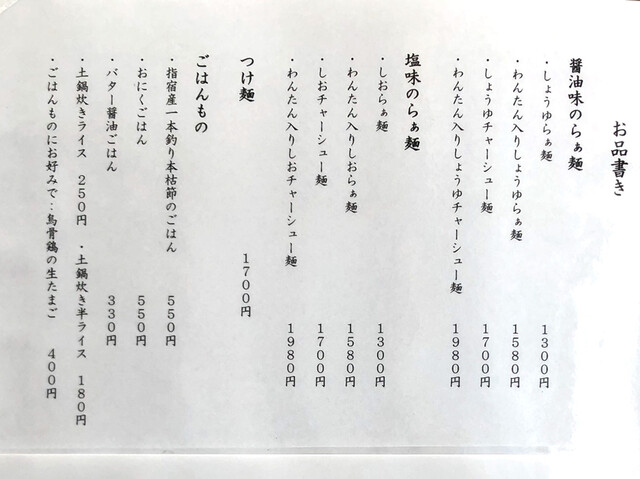 お品書き
醤油味のらぁ麺
・しょうゆらぁ麺 1300円
・わんたん入りしょうゆらぁ麺 1580円
・しょうゆチャーシュー麺 1700円
・わんたん入りしょうゆチャーシュー麺 1980円
塩味のらぁ麺
・しおらぁ麺 1300円
・わんたん入りしおらぁ麺 1580円
・しおチャーシュー麺 1700円
・わんたん入りしおチャーシュー麺 1980円
つけ麺 1700円
ごはんもの
・指宿産一本釣り本枯節のごはん 550円
・おにくごはん 550円
・バター醤油ごはん 330円
・土鍋炊きライス 250円 ・土鍋炊き半ライス 180円
・ごはんものにお好みで…烏骨鶏の生たまご 400円